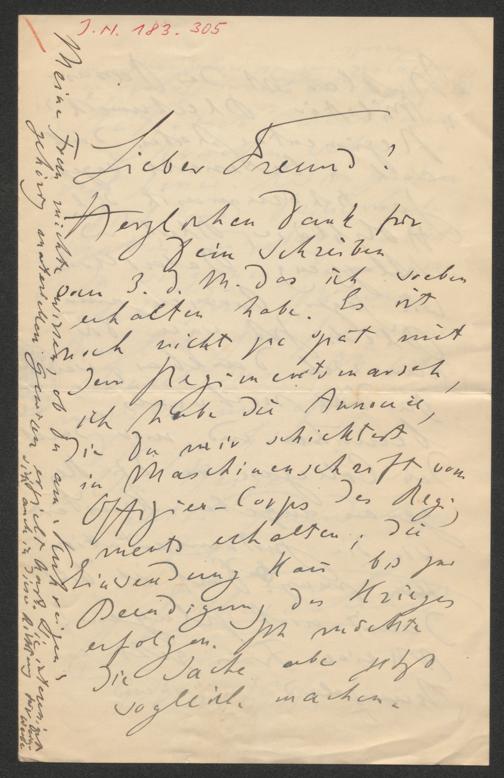 J.N. 183.305
Lieber Freund!
Herzlichen Dank für
Dein Schreiben
vom 3. d. M. das ich soeben
erhalten habe. Es ist
noch nicht zu spät mit
dem Regimentsmarsch,
ich habe die Annonce,
die Du mir schicktest
in Maschinenschrift vom
Offizier-Corps des Regi-
ments erhalten; die
Einsendung kann bis zur
Beendigung des Krieges
erfolgen. Ich möchte
die Sache aber jetzt
sogleich machen.
Meine Frau möchte wissen, ob Du am "Kuhreigen"
gehörig materiellen Gewinn erzielt hast. Sie interessirt
sich auch in dieser Richtung